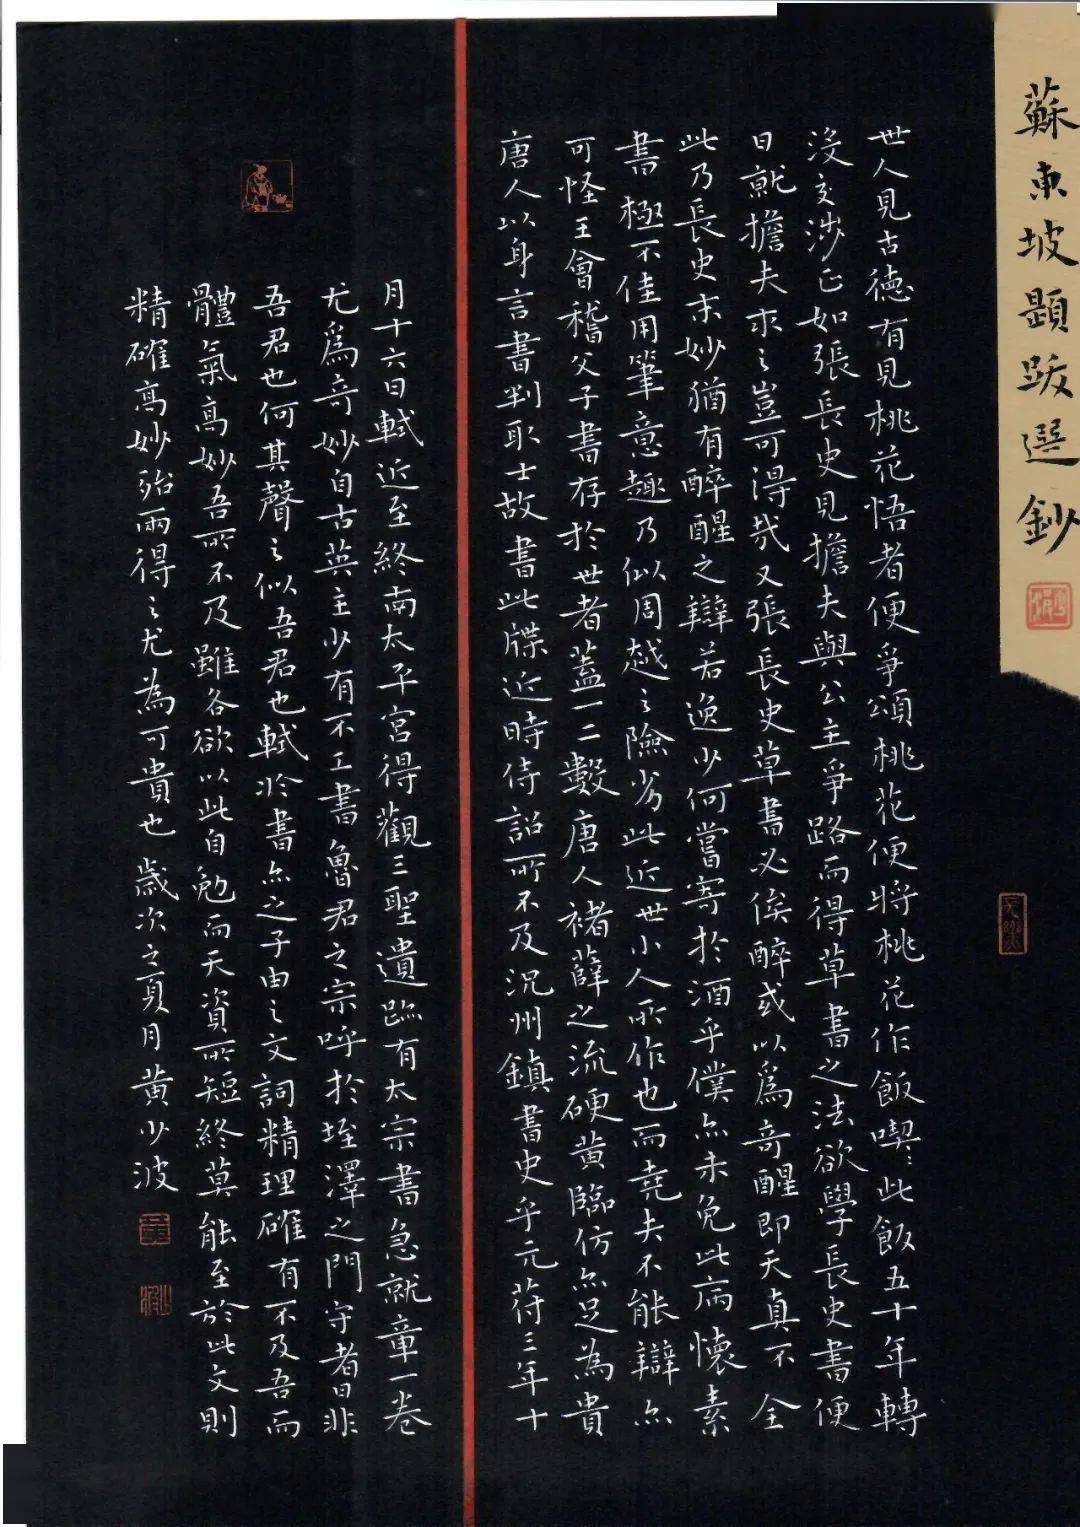 蘇東坡題跋選鈔
世人見古德有見桃花悟者便爭頌桃花便將桃花作飯喫〻此飯五十年轉
沒交涉正如張長史見擔夫與公主爭路而得草書之法欲學長史書便
日就擔夫求之豈可得哉又張長史草書必俟醉或以爲奇醒即天真不全
此乃長史未妙猶有醉醒之辯若逸少何嘗寄於酒乎僕亦未免此病懷素
書極不佳用筆意趣乃似周越之險劣此近世小人所作也而堯夫不能辯亦
可怪王會稽父子書存於世者蓋一二數唐人褚薛之流硬黃臨仿亦足為貴
唐人以身言書判取士故書此牒近時待詔所不及況州鎮書史乎元符三年十
月十六日軾近至終南太平宮得觀三聖遺跡有太宗書急就章一卷
尤爲奇妙自古英主少有不工書魯君之宗呼於垤澤之門守者曰非
吾君也何其聲之似吾君也軾於書亦之子由之文詞精理確有不及吾而
體氣高妙吾所不及雖各欲以此自勉而天資所短終莫能至於此文則
精確高妙殆兩得之尤為可貴也歲次之夏月黄少波